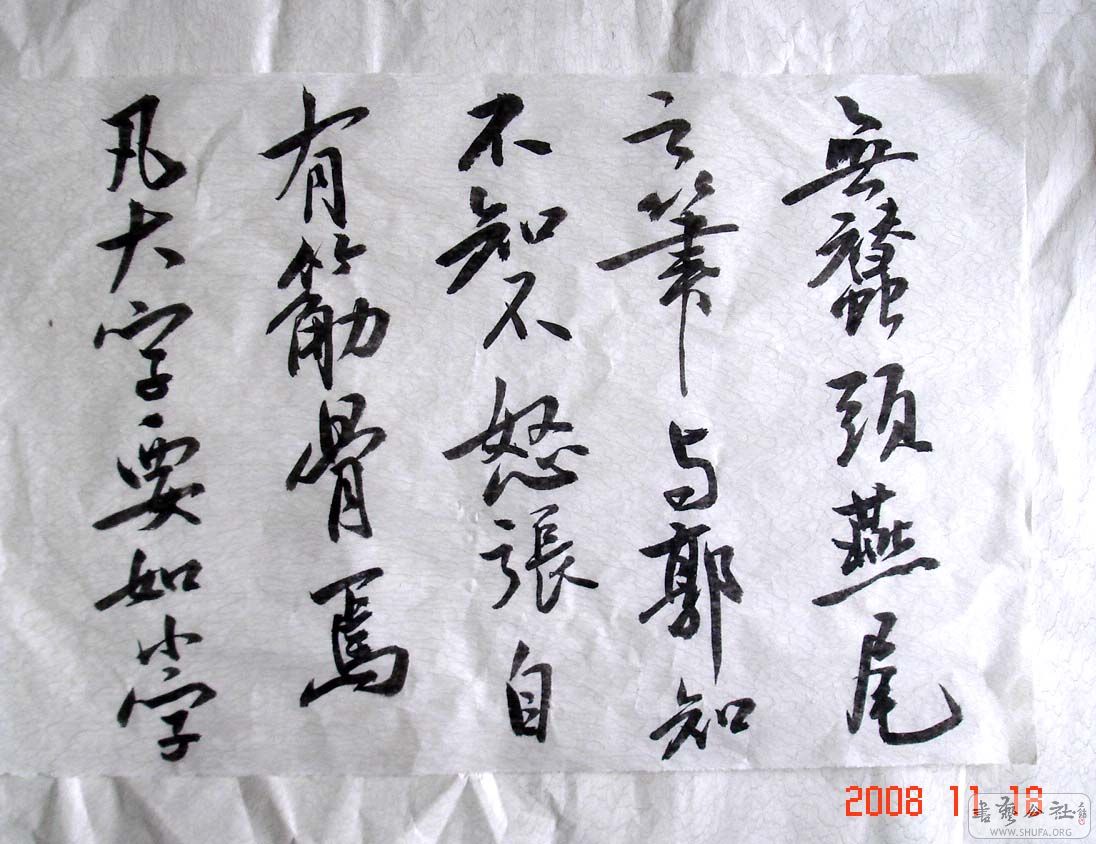 無蠶頭燕尾
之筆与郭知
不知不怒張自
有筋骨焉
凡大字要如小字
2008 11 18
書藝公社
WWW.SHUFA.ORG